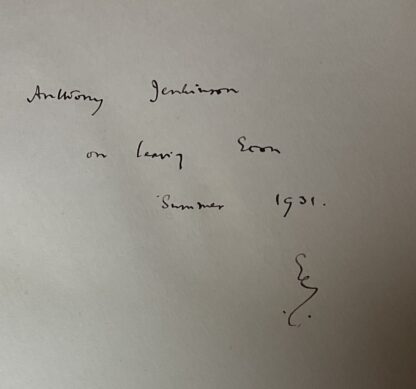 Anthony Jenkinson
on leaving Eton
Summer 1931.